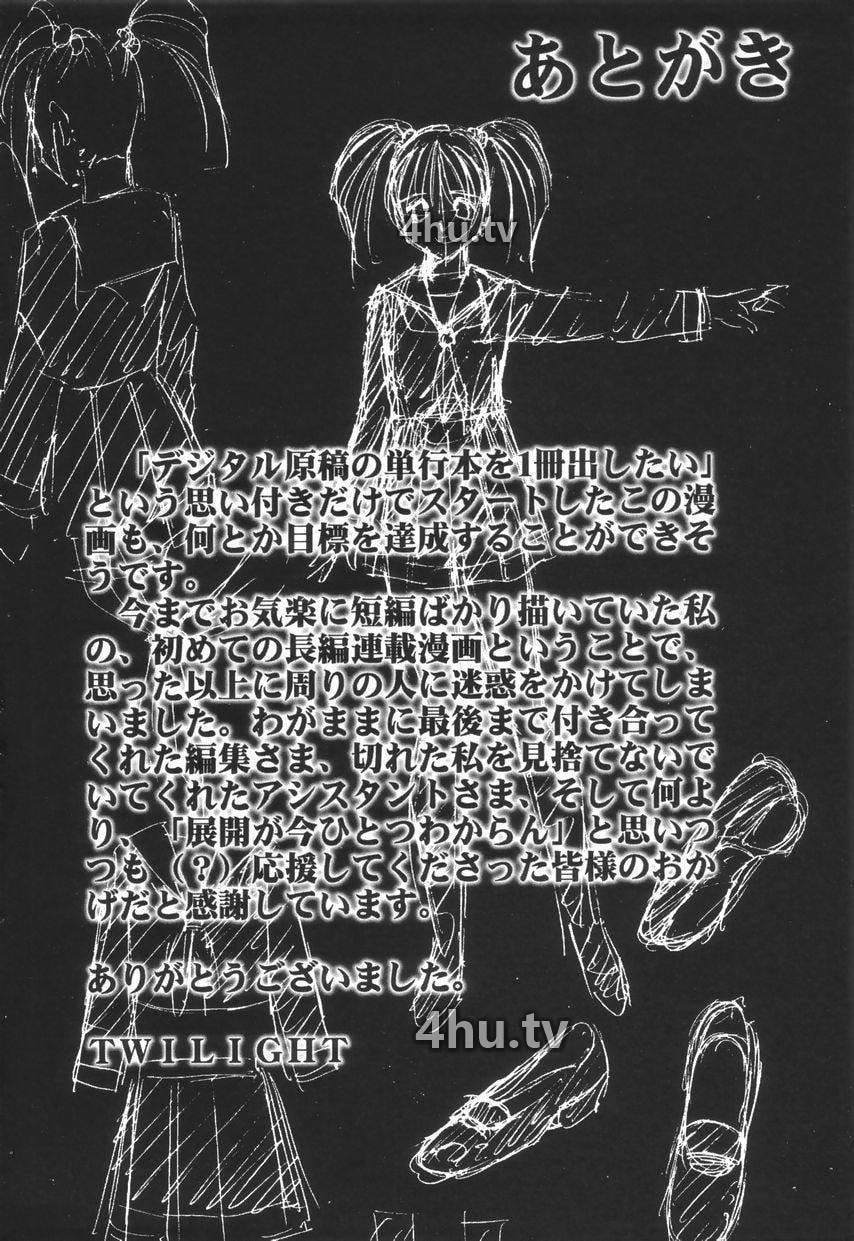 あとがき
4hu.tv
「デジタル原稿の単行本を1冊出したい」
という思い付きだけでスタートしたこの漫
画も、何とか目標を達成することができそ
うです。
今までお気楽に短編ばかり描いていた私
の、初めての長編連載漫画ということで、
思った以上に周りの人に迷惑をかけてしま
いました。わがままに最後まで付き合って
くれた編集さま、切れた私を見捨てないで
いてくれたアシスタントさま、そして何よ
り、「展開が今ひとつわからん」と思いつ
つも（？）応援してくださった皆様のおか
げだと感謝しています。
ありがとうございました。
4hu.tv
ＴＷＩＬＩＧＨＴ